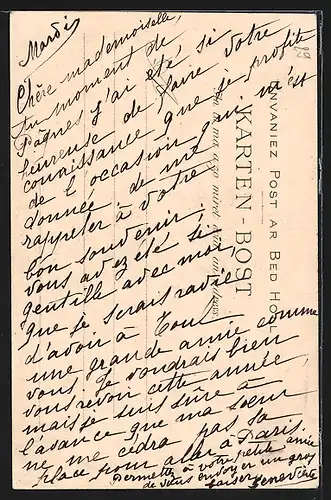 Mardi
Chère mademoiselle,
au moment de
Pâques j'ai été si
heureuse de faire votre
connaissance que je profite
de l'occasion qui m'est
donnée de me
rappeler à votre
bon souvenir;
vous avez été si
gentille avec moi,
que je serais ravie
d'avoir à Tours
une grande amie comme
vous. Je voudrais bien
vous revoir cette année
mais je suis sûre à
l'avance que ma sœur
ne me cédra pas sa
place pour aller à Paris.
Permettez à votre petite amie
de vous envoyer un gros
baiser Geneviève
UNVANIEZ POST AR BED HOLL
KARTEN-BOST